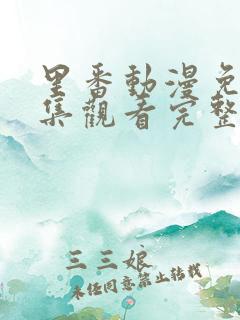 里番動漫免
集觀看完整
三三娘
未经同意禁止转载